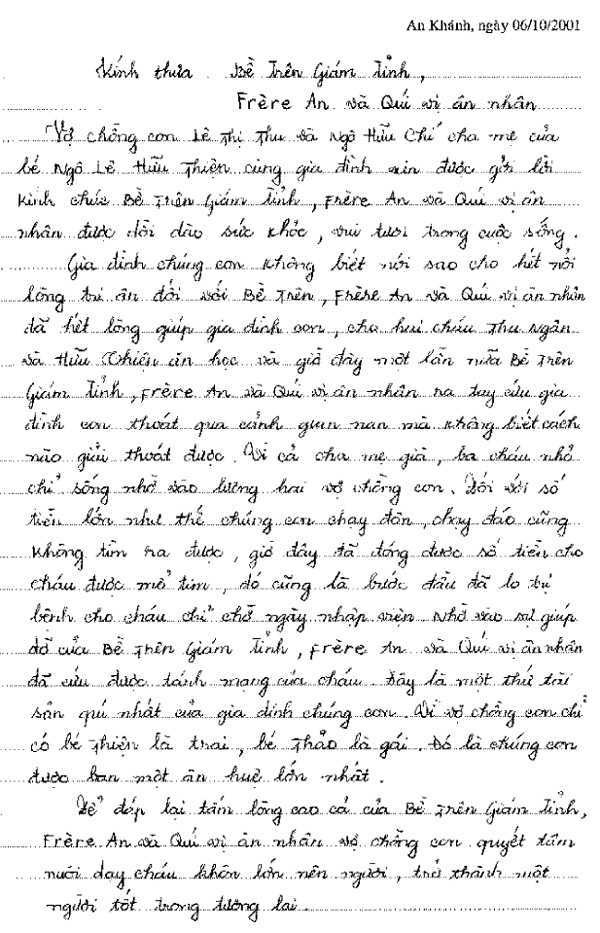 An Khánh, ngày 06/10/2001
Kính thưa Bề Trên Giám Tỉnh,
Frère An và Quí vị ân nhân
Vợ chồng con Lê Thị Thu và Ngô Hữu Chí cha mẹ của
bé Ngô Lê Hữu Thiện cùng gia đình xin được gởi lời
kính chúc Bề Trên Giám Tỉnh, Frère An và Quí vị ân
nhân được dồi dào sức khỏe, vui tươi trong cuộc sống.
Gia đình chúng con không biết nói sao cho hết nỗi
lòng tri ân đối với Bề Trên, Frère An và Quí vị ân nhân
đã hết lòng giúp gia đình con, cho hai cháu Thu Ngân
và Hữu Thiện ăn học và giờ đây một lần nữa Bề Trên
Giám Tỉnh, Frère An và Quí vị ân nhân ra tay cứu gia
đình con thoát qua cảnh gian nan mà không biết cách
nào giải thoát được. Vì cả cha mẹ già, ba cháu nhỏ
chỉ sống nhờ vào lương hai vợ chồng con. Đối với số
tiền lớn như thế chúng con chạy đôn, chạy đáo cũng
không tìm ra được, giờ đây đã đóng được số tiền cho
cháu được mổ tim, đó cũng là bước đầu đã lo trị
bệnh cho cháu chỉ chờ ngày nhập viện nhờ vào sự giúp
đỡ của Bề Trên Giám Tỉnh, Frère An và Quí vị ân nhân
đã cứu được tánh mạng của cháu. Đây là một thứ tài
sản quí nhất của gia đình chúng con. Vì vợ chồng con chỉ
có bé Thiện là trai, bé Thảo là gái. Đó là chúng con
được ban một ân huệ lớn nhất.
Để đáp lại tấm lòng cao cả của Bề Trên Giám Tỉnh,
Frère An và Quí vị ân nhân vợ chồng con quyết tâm
nuôi dạy cháu khôn lớn nên người, trở thành một
người tốt trong tương lai.